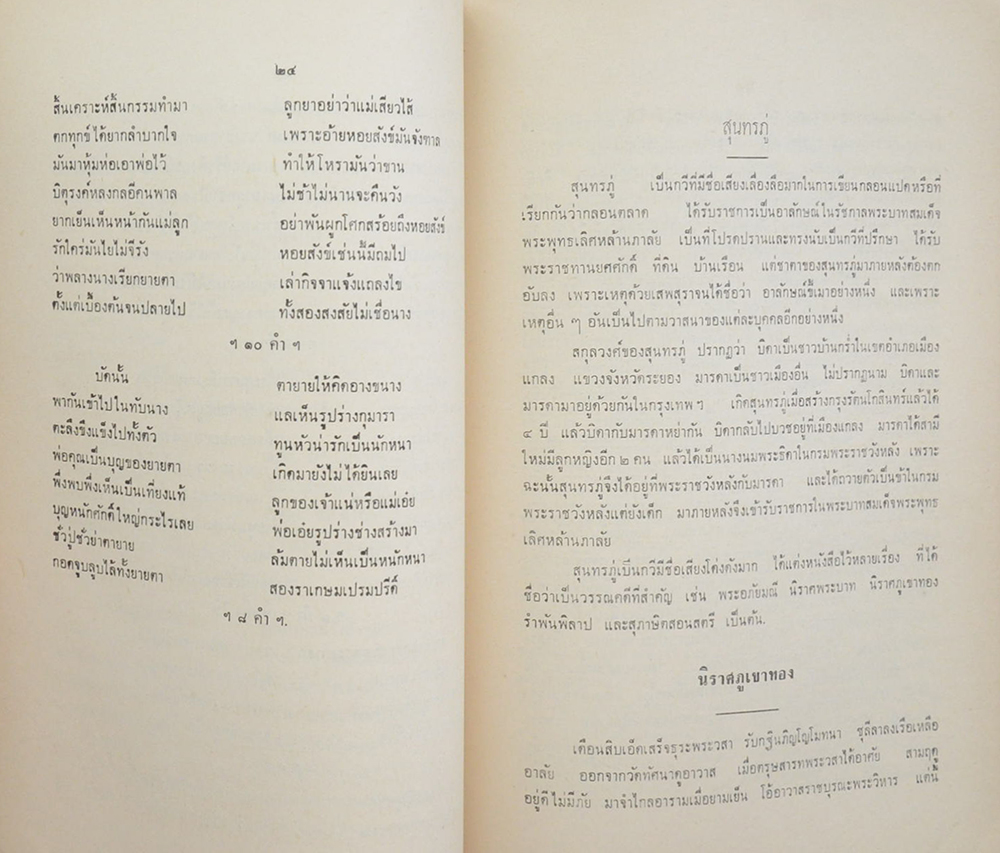 ๒๔
สิ้นเคราะห์สิ้นกรรมทำมา ลูกยาอย่าว่าแม่เสียวไส้
ตกทุกข์ได้ยากลำบากใจ เพราะอ้ายหอยสังข์มันจังฑาล
มันมาหุ้มห่อเอาพ่อไว้ ทำให้โหรามันว่าขาน
บิตุรงค์หลงกลอีคนพาล ไม่ช้าไม่นานจะคืนวัง
ยากเย็นเห็นหน้ากันแม่ลูก อย่าพันผูกโศกสร้อยถึงหอยสังข์
รักใคร่มันไยไม่จีรัง หอยสังข์เช่นนี้มีถมไป
ว่าพลางนางเรียกยายตา เล่ากิจจาแจ้งแถลงไข
ตั้งแต่เบื้องต้นจนปลายไป ทั้งสองสงสัยไม่เชื่อนาง
ฯ ๑๐ คำ ฯ
บัดนั้น ตายายให้คิดอางขนาง
พากันเข้าไปในทับนาง แลเห็นรูปร่างกุมารา
ตะลึงขึงแข็งไปทั้งตัว ทูนหัวน่ารักเป็นนักหนา
พ่อคุณเป็นบุญของยายตา เกิดมายังไม่ได้ยินเลย
พึ่งพบพึ่งเห็นเป็นเที่ยงแท้ ลูกของเจ้าแน่หรือแม่เอ๋ย
บุญหนักศักดิ์ใหญ่กระไรเลย พ่อเอ๋ยรูปร่างช่างสร้างมา
ชั่วปู่ชั่วย่าตายาย ล้มตายไม่เห็นเป็นหนักหนา
กอดจูบลูบไล้ทั้งยายตา สองราเกษมเปรมปรีดิ์
ฯ ๘ คำ ฯ.
สุนทรภู่
สุนทรภู่ เป็นกวีที่มีชื่อเสียงเลื่องลือมากในการเขียนกลอนแปดหรือที่
เรียกกันว่ากลอนตลาด ได้รับราชการเป็นอาลักษณ์ในรัชกาลพระบาทสมเด็จ
พระพุทธเลิศหล้านภาลัย เป็นที่โปรดปรานและทรงนับเป็นกวีที่ปรึกษา ได้รับ
พระราชทานยศศักดิ์ ที่ดิน บ้านเรือน แต่ชาตาของสุนทรภู่มาภายหลังต้องตก
อับลง เพราะเหตุด้วยเสพสุราจนได้ชื่อว่า อาลักษณ์ขี้เมาอย่างหนึ่ง และเพราะ
เหตุอื่น ๆ อันเป็นไปตามวาสนาของแต่ละบุคคลอีกอย่างหนึ่ง
สกุลวงศ์ของสุนทรภู่ ปรากฏว่า บิดาเป็นชาวบ้านกร่ำในเขตอำเภอเมือง
แกลง แขวงจังหวัดระยอง มารดาเป็นชาวเมืองอื่น ไม่ปรากฏนาม บิดาและ
มารดามาอยู่ด้วยกันในกรุงเทพฯ เกิดสุนทรภู่เมื่อสร้างกรุงรัตนโกสินทร์แล้วได้
๔ ปี แล้วบิดากับมารดาหย่ากัน บิดากลับไปบวชอยู่ที่เมืองแกลง มารดาได้สามี
ใหม่มีลูกหญิงอีก ๒ คน แล้วได้เป็นนางนมพระธิดาในกรมพระราชวังหลัง เพราะ
ฉะนั้นสุนทรภู่จึงได้อยู่ที่พระราชวังหลังกับมารดา และได้ถวายตัวเป็นข้าในกรม
พระราชวังหลังแต่ยังเด็ก มาภายหลังจึงเข้ารับราชการในพระบาทสมเด็จพระพุทธ
เลิศหล้านภาลัย
สุนทรภู่เป็นกวีมีชื่อเสียงโด่งดังมาก ได้แต่งหนังสือไว้หลายเรื่อง ที่ได้
ชื่อว่าเป็นวรรณคดีที่สำคัญ เช่น พระอภัยมณี นิราศพระบาท นิราศภูเขาทอง
รำพันพิลาป และสุภาษิตสอนสตรี เป็นต้น.
นิราศภูเขาทอง
เดือนสิบเอ็ดเสร็จธุระพระวสา รับกฐินภิญโญโมทนา ชุลีลาลงเรือเหลือ
อาลัย ออกจากวัดทัศนาดูอาวาส เมื่อตรุษสารทพระวสาได้อาศัย สามฤดู
อยู่ดีไม่มีภัย มาจำไกลอารามเมื่อยามเย็น โอ้อาวาสราชบุรณะพระวิหาร แต่นี้